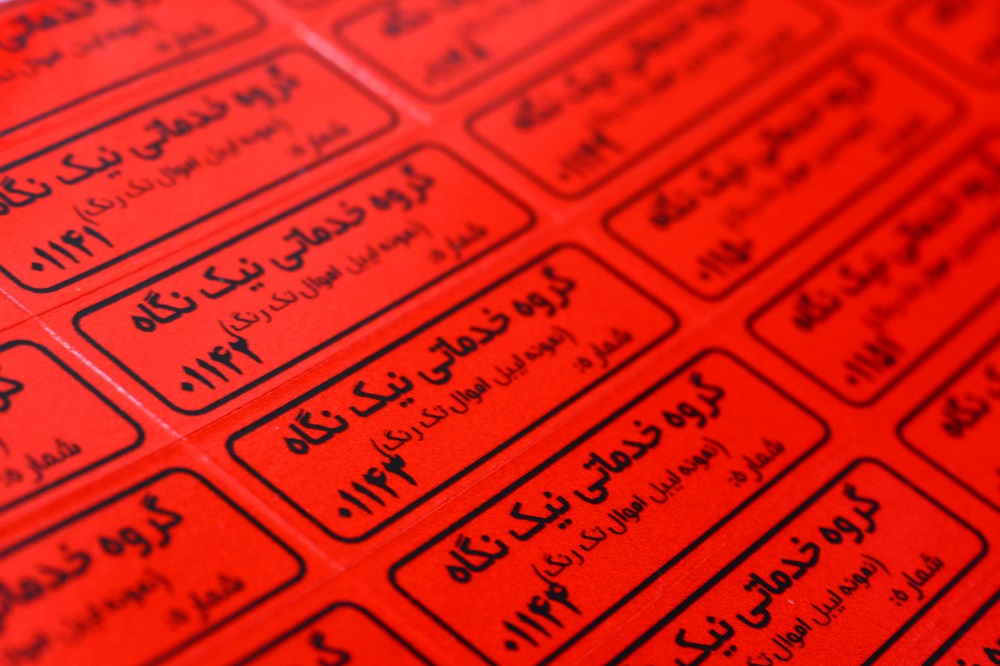 گروه خدماتی
گروه خدماتی نیک نگاه
(نمونه لیبل اموال تک رنگ)
شماره:
۰۱۱۴۱
گروه خدماتی نیک نگاه
(نمونه لیبل اموال تک رنگ)
شماره:
۰۱۱۴۲
گروه خدماتی نیک نگاه
(نمونه لیبل اموال تک رنگ)
شماره:
۰۱۱۴۳
گروه خدماتی نیک نگاه
(نمونه لیبل اموال تک رنگ)
شماره:
۰۱۱۴۴
گروه خدماتی نیک
(نمونه لیبل اموال تک
شماره:
۰۱۱۴۸
گروه خدماتی نیک نگاه
۰۱۱۴۹
گروه خدماتی نیک نگاه
۰۱۱۵۰
گروه خدماتی نیک نگاه
۰۱۱۵۱
نگاه
شماره:
گروه خدماتی
(نمونه لیبل اموال
شماره:
گروه